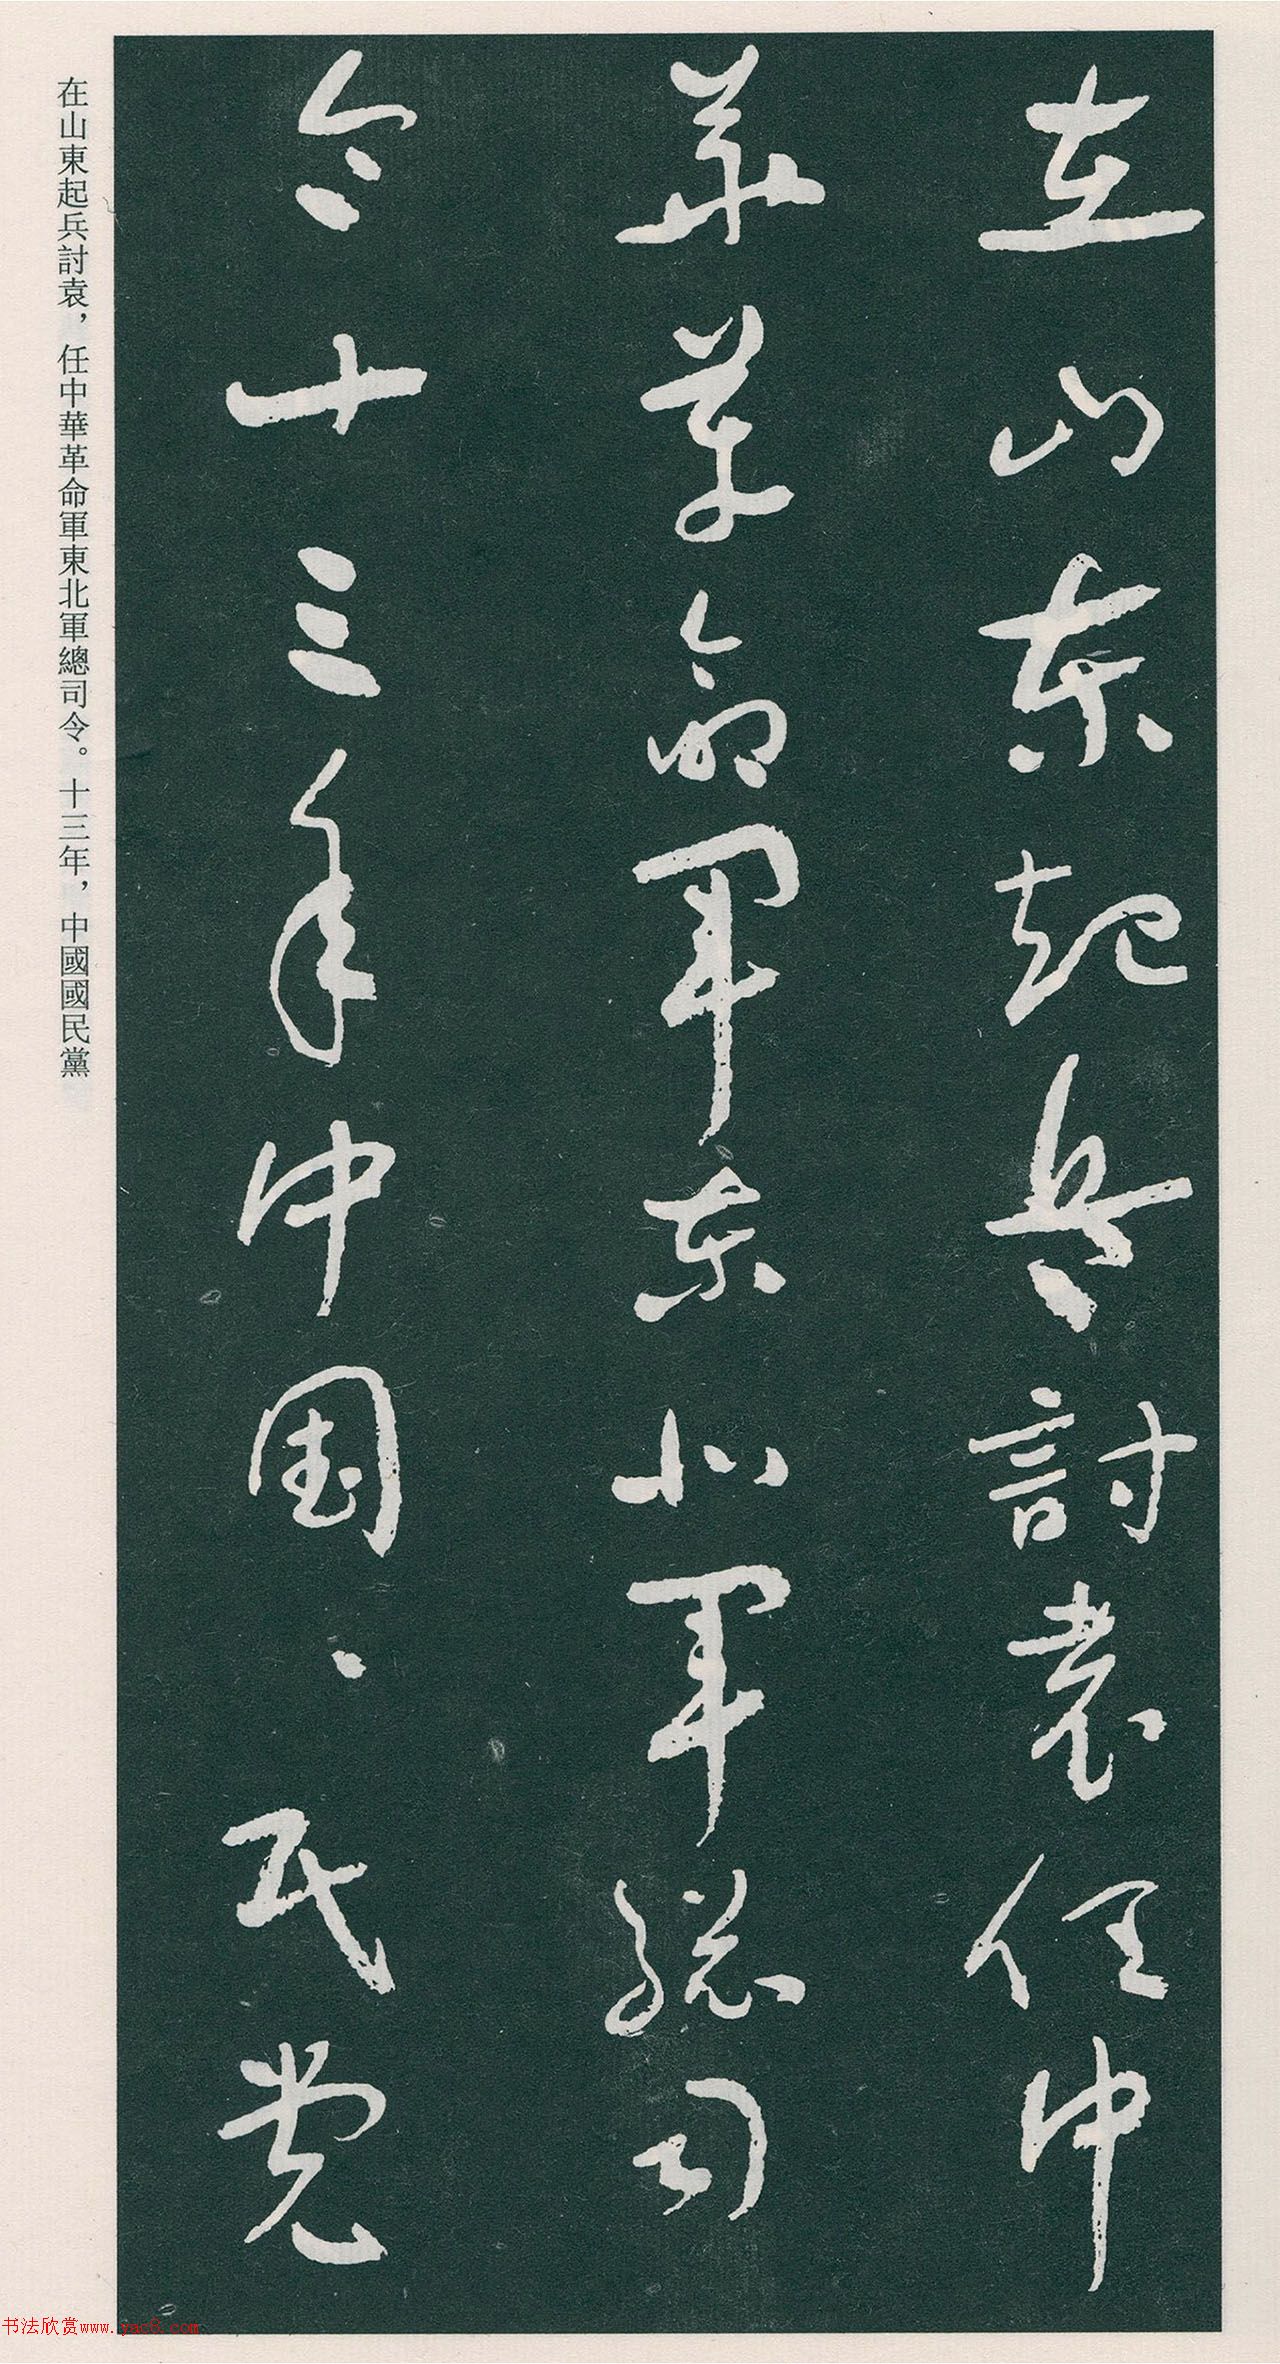 在山东起兵討袁任中
華革命軍东北軍総司
令十三年中国〻民党
在山東起兵討袁，任中華革命軍東北軍總司令。十三年，中國國民黨
书法欣赏www.yac8.com